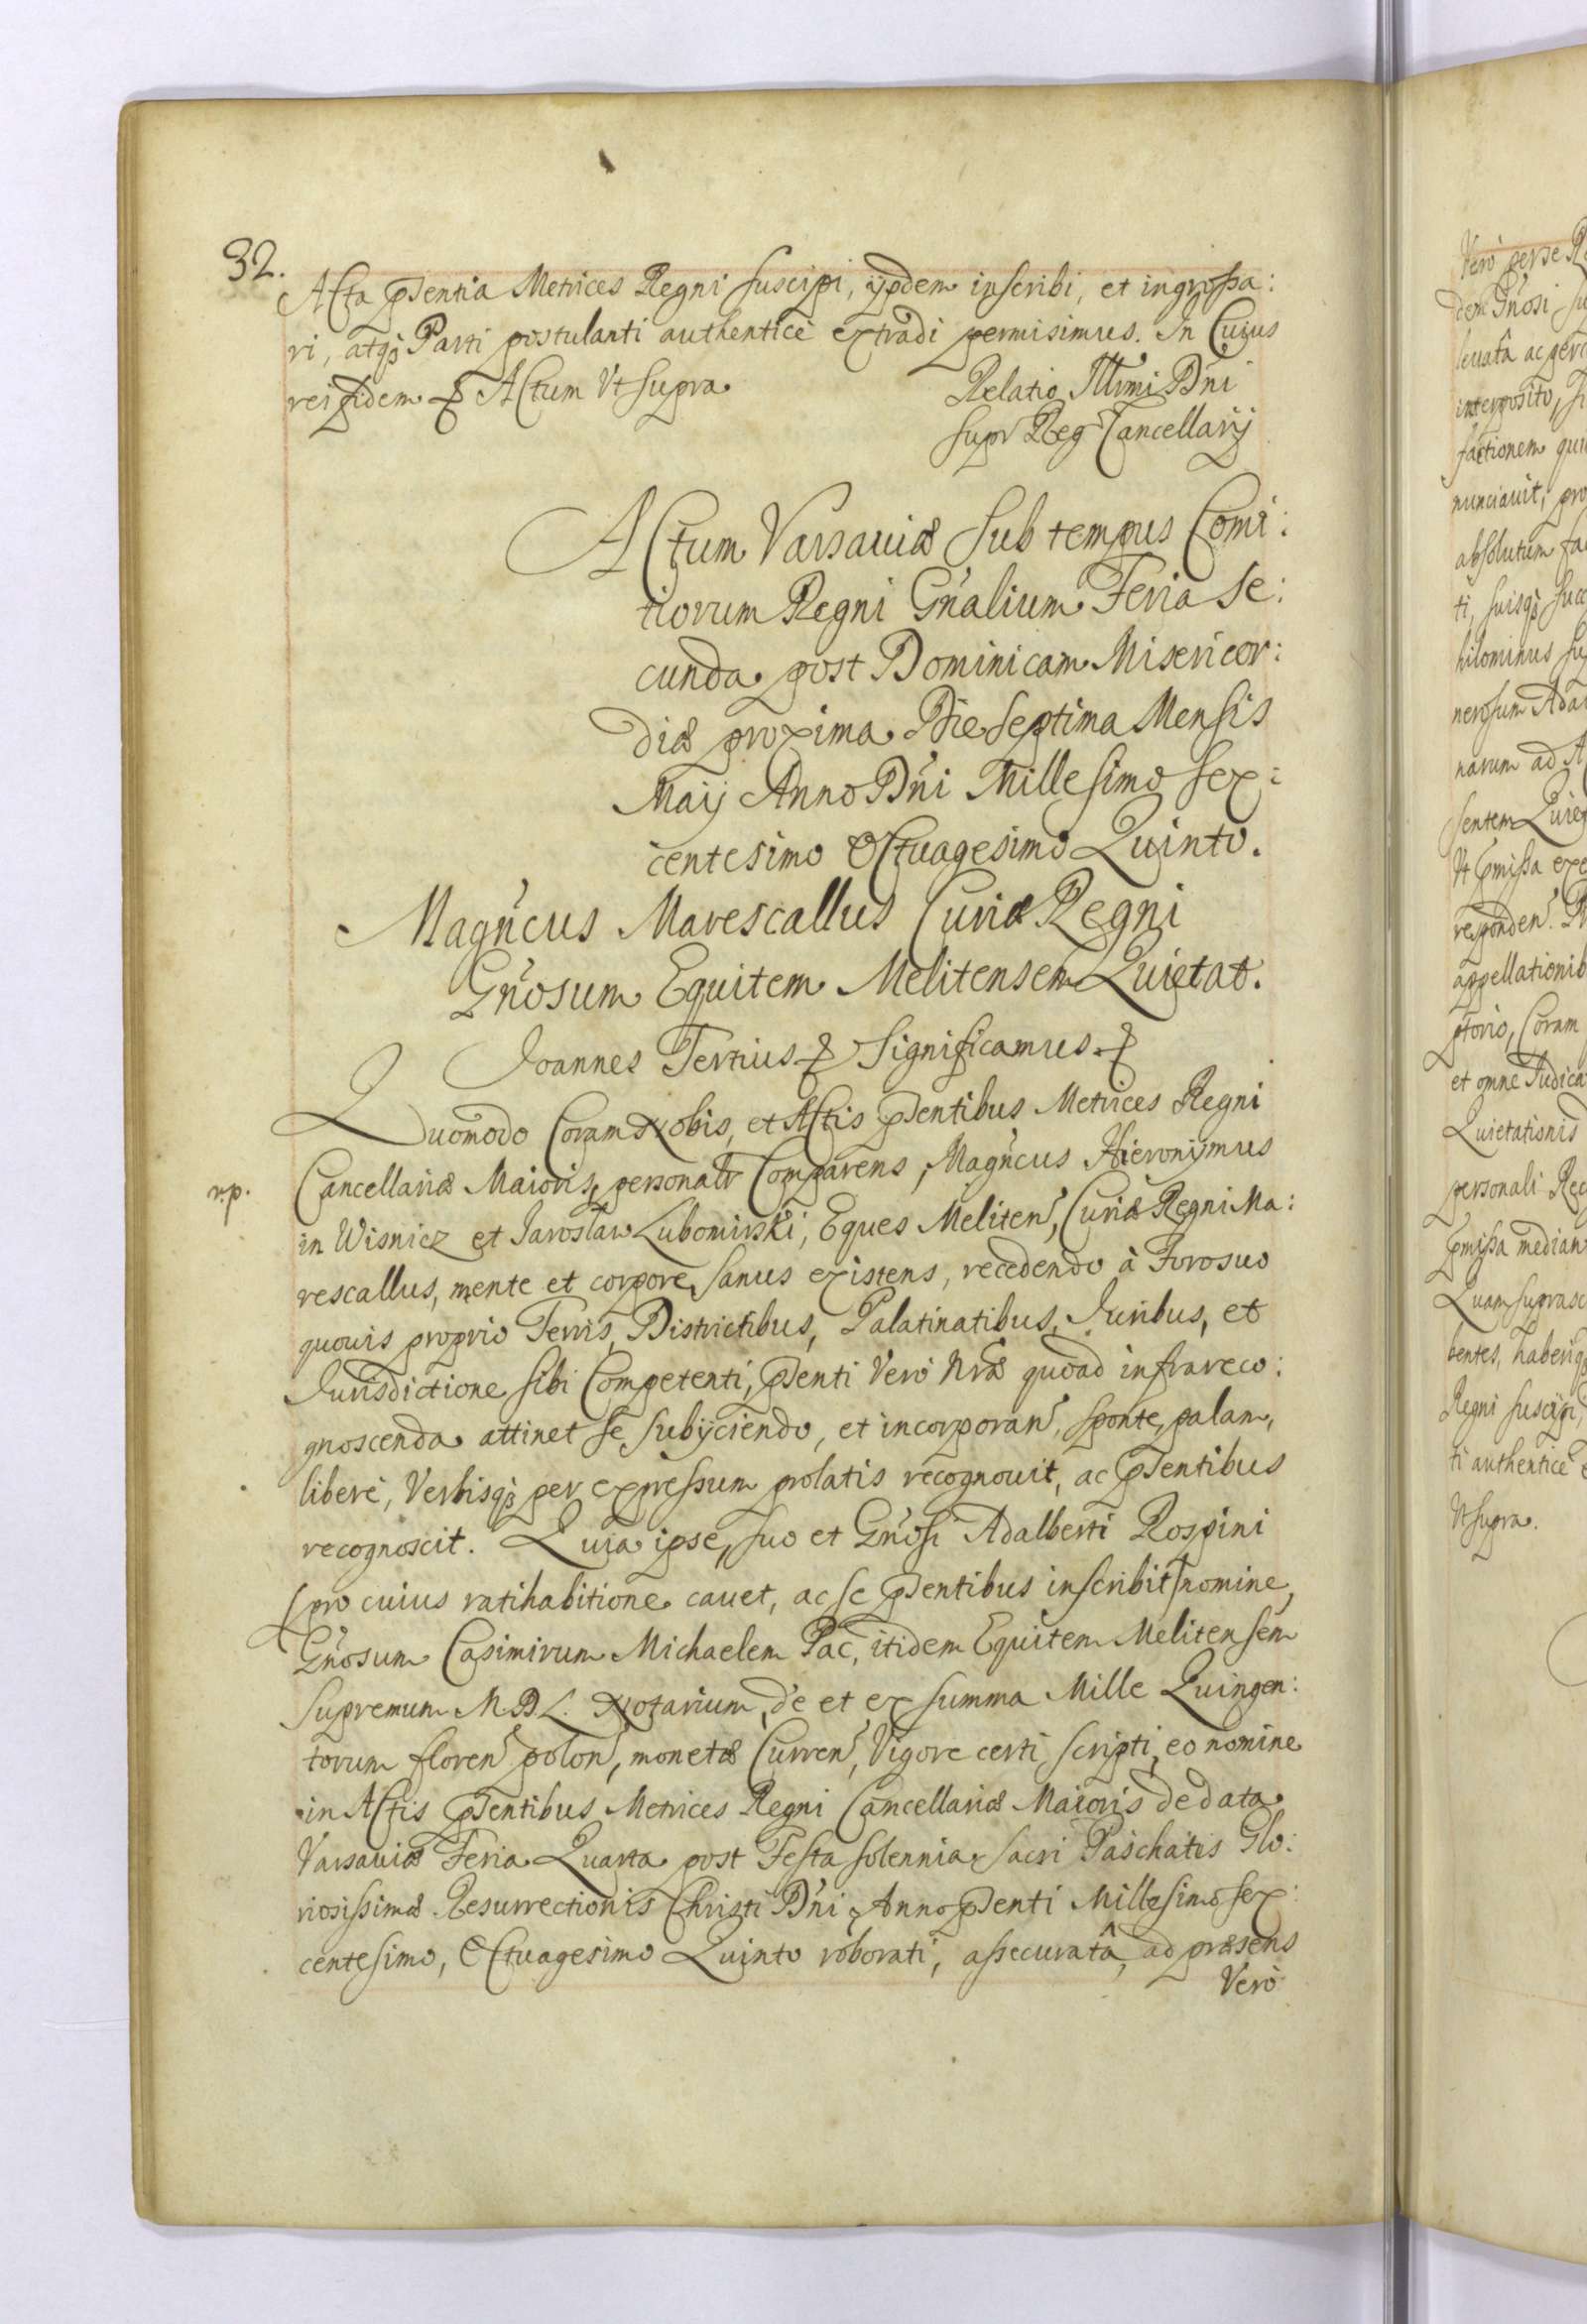 32.
Acta pñtentia Metrices Regni suscipi, ijsdem inscribi, et ingrossa:
ri, atq́ꝫ Parti postulanti authenticè extradi permisimus. In Cuius
rei fidem &. Actum Vt supra
Relatio Illmi Dńi
supr Reg Cancellarij
Actum Varsaviæ sub tempus Comi:
tiorum Regni Gńalium Feria Se:
cunda post Dominicam Misericor:
diæ proxima Die Septima Mensis
Maij Anno Dńi Millesimo sex:
centesimo Octuagesimo Quinto.
Magńcus Marescallus Curiæ Regni
Gńosum Equitem Melitensem Quietat.
Joannes Tertius & Significamus &
Quomodo Coram Nobis, et Actis pñtibus Metrices Regni
r.p.
Cancellariæ Maioris, personalr Comparens, Magńcus Hieronÿmus
in Wisnicz et Jaroslaw Lubomirski, Eques Meliten, Curiæ Regni Ma:
rescallus, mente et corpore sanus existens, recedendo à Foro suo
quovis proprio Terris, Districtibus, Palatinatibus, Juribus, et
Jurisdictione sibi Competenti, pñti Verò Nræ quoad infrareco:
gnoscenda attinet se subijciendo, et incorporan, sponte, palam,
liberè, Verbisq́ꝫ per expressum prolatis recognouit, ac pñtibus
recognoscit. Quia ipse, suo et Gńosi Adalberti Rospini
(pro cuius ratihabitione cavet, ac se pñtibus inscribit) nomine,
Gńosum Casimirum Michaelem Pac, itidem Equitem Melitensem
Supremum M.D.L. Notarium, de et ex summa Mille Quingen:
torum floren polon, monetæ Curren, Vigore certi scripti, eo nomine
in Actis pñtibus Metrices Regni Cancellariæ Maioris de data
Varsaviæ Feria Quarta post Festa solennia Sacri Paschatis Glo:
riosissimæ Resurrectionis Christi Dńi, Anno pñti Millesimo sex:
centesimo, Octuagesimo Quinto roborati, assecuratâ, ad præsens
Verò
Verò per se
dem Gńosi
levatâ ac
interposito,
factionem
nunciavit,
absolutum
ti, suisq́ꝫ
hilominus
nerosum
narum ad
sentem
Vt
responden
appellationib
Coram
et omne
Quietationis
personali
median
Quam
bentes,
Regni suscipi,
ti authenticè
Vt supra.